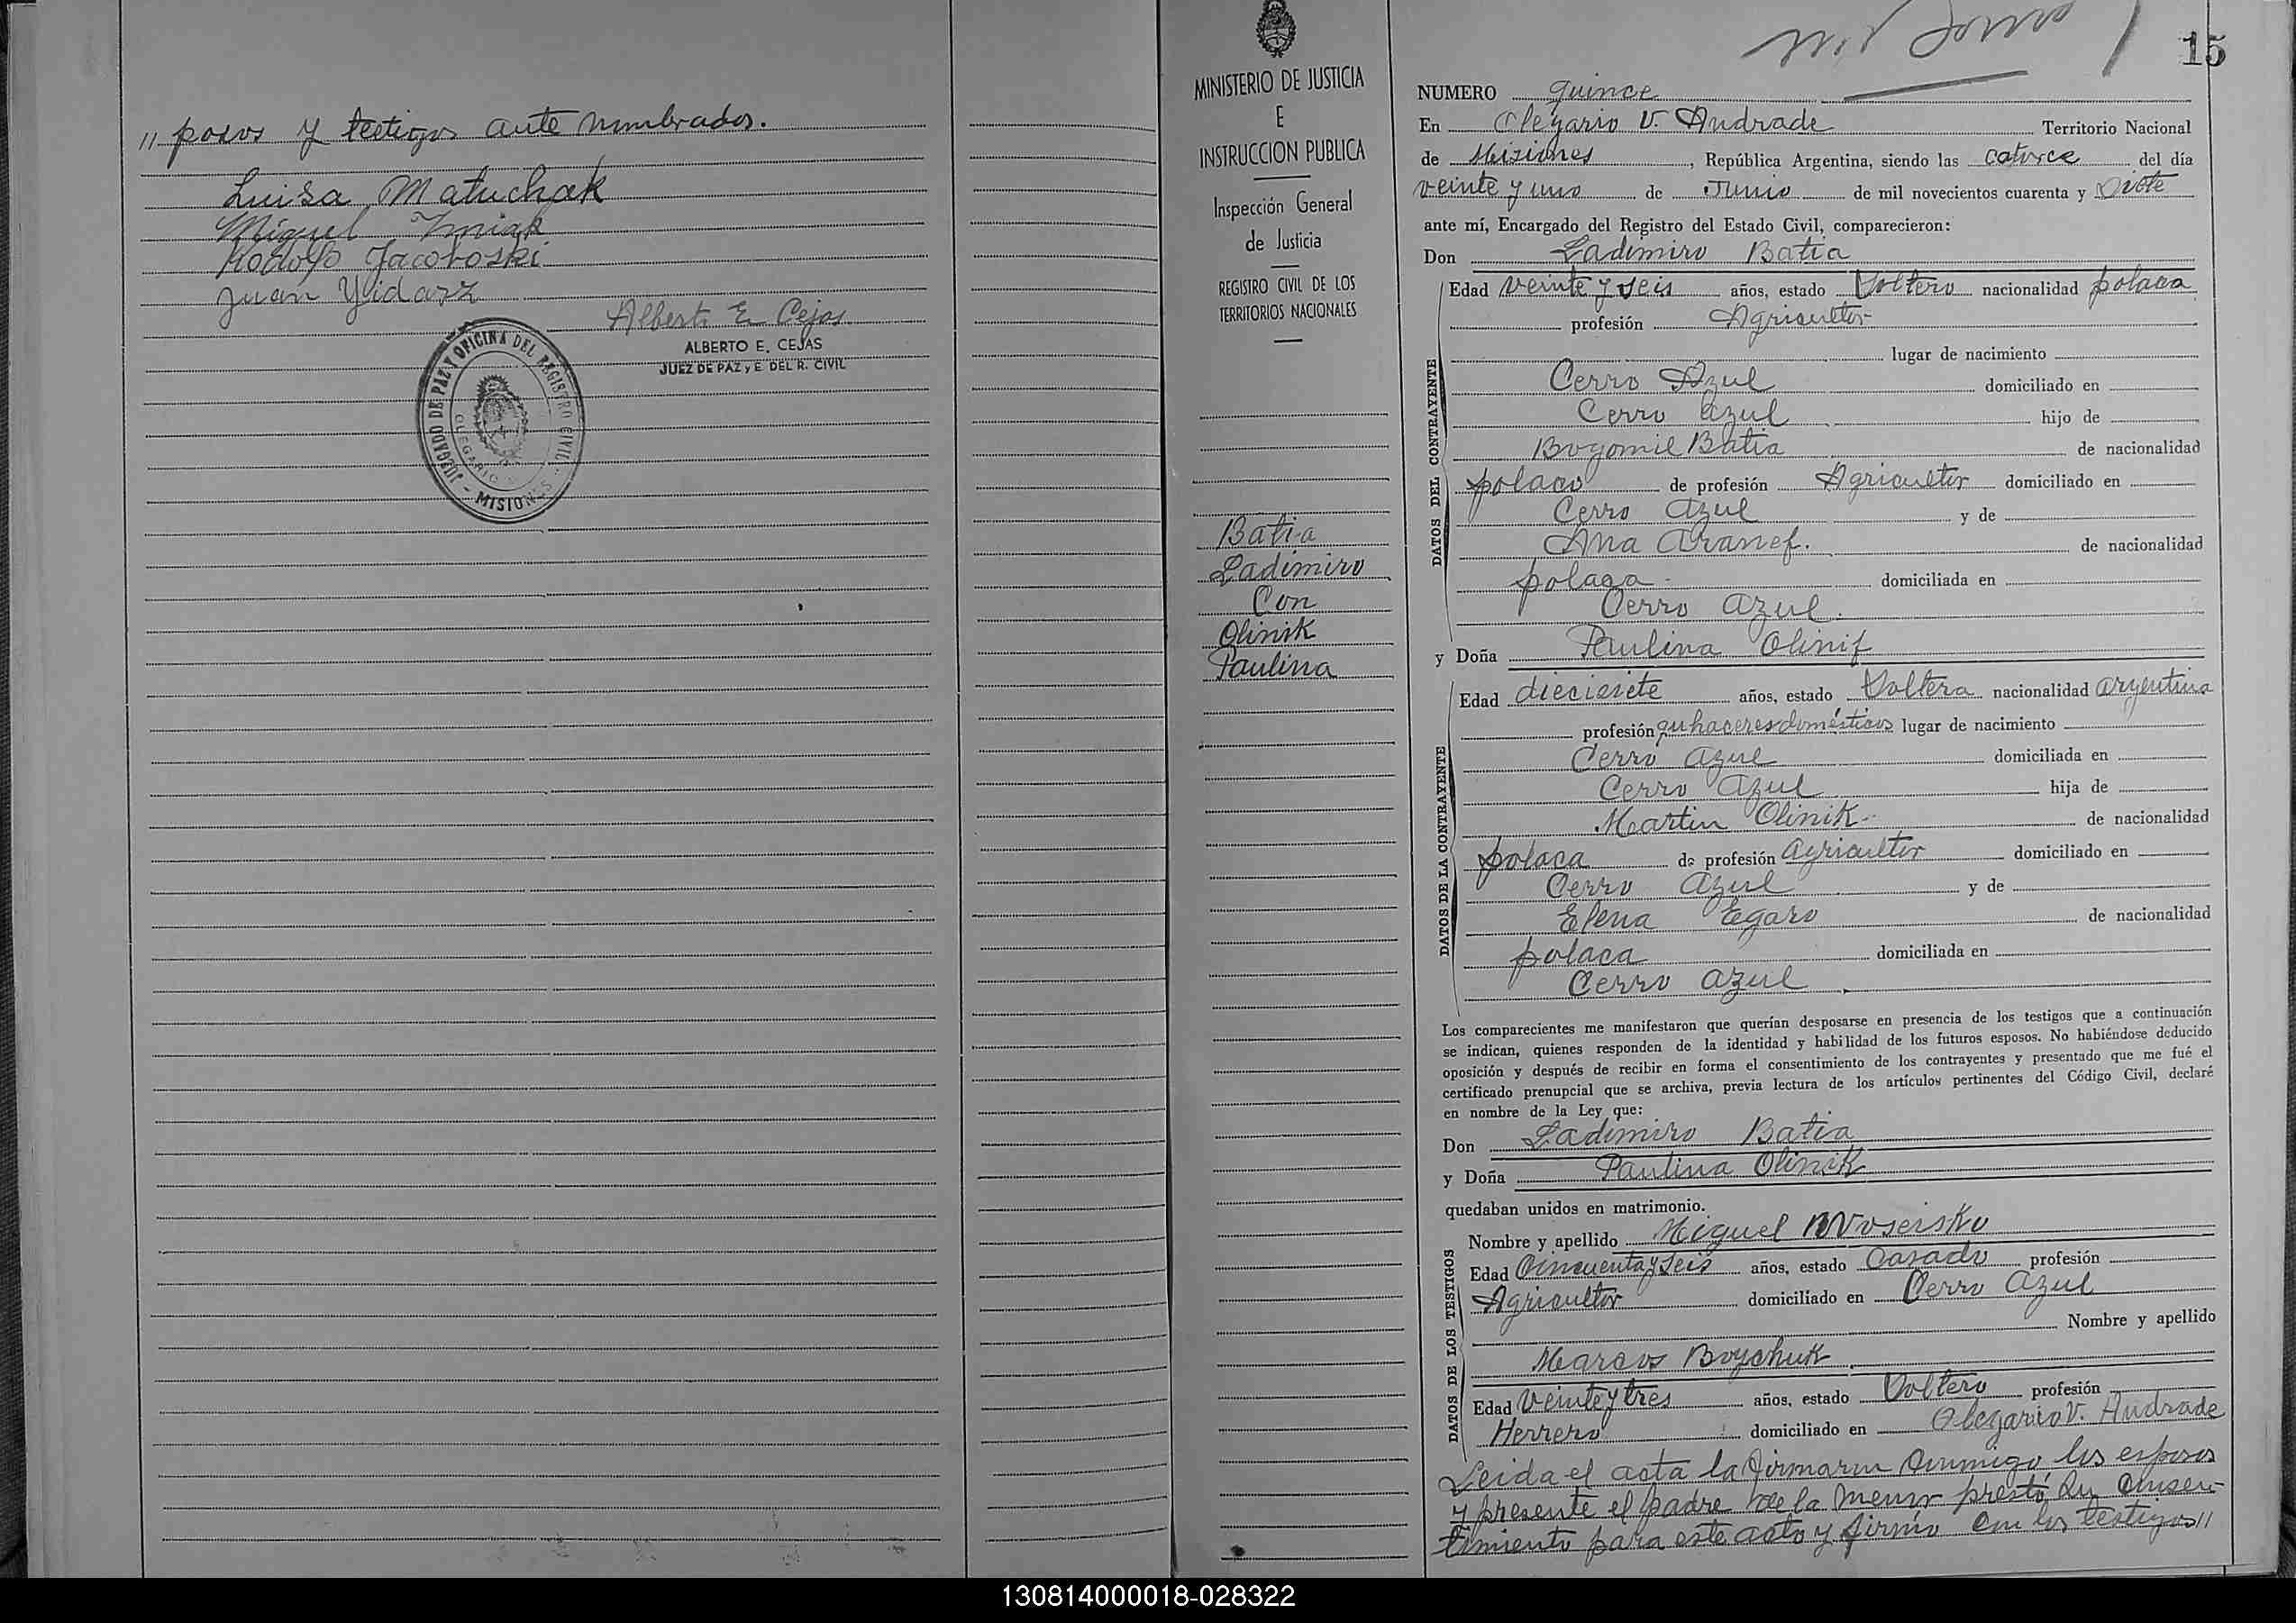 // posos y testigos ante nombrados.
Luisa Matuchak
Miguel Zmiak
Rodolfo Jacoboski
Juan Yidarz
Alberto E. Cejas
ALBERTO E. CEJAS
JUEZ DE PAZ y E. DEL R. CIVIL
JUZGADO DE PAZ Y OFICINA DEL REGISTRO CIVIL
- MISIONES -
MINISTERIO DE JUSTICIA
E
INSTRUCCION PUBLICA
Inspección General
de Justicia
REGISTRO CIVIL DE LOS
TERRITORIOS NACIONALES
Batia
Ladimiro
Con
Olinik
Paulina
15
NUMERO quince
En Olegario V. Andrade Territorio Nacional
de Misiones, República Argentina, siendo las catorce del día
veinte y uno de Junio de mil novecientos cuarenta y siete
ante mí, Encargado del Registro del Estado Civil, comparecieron:
Don Ladimiro Batia
DATOS DEL CONTRAYENTE
Edad veinte y seis años, estado Soltero nacionalidad polaca
profesión Agricultor
lugar de nacimiento
Cerro Azul domiciliado en
Cerro Azul hijo de
Bogomil Batia de nacionalidad
polaco de profesión Agricultor domiciliado en
Cerro Azul y de
Ana Aranef. de nacionalidad
polaca domiciliada en
Cerro Azul.
y Doña Paulina Olinif
DATOS DE LA CONTRAYENTE
Edad diecisiete años, estado Soltera nacionalidad argentina
profesión quhaceres domésticos lugar de nacimiento
Cerro Azul domiciliada en
Cerro Azul hija de
Martin Olinik de nacionalidad
polaca de profesión Agricultor domiciliado en
Cerro Azul y de
Elena Egaro de nacionalidad
polaca domiciliada en
Cerro Azul
Los comparecientes me manifestaron que querían desposarse en presencia de los testigos que a continuación
se indican, quienes responden de la identidad y habilidad de los futuros esposos. No habiéndose deducido
oposición y después de recibir en forma el consentimiento de los contrayentes y presentado que me fué el
certificado prenupcial que se archiva, previa lectura de los artículos pertinentes del Código Civil, declaré
en nombre de la Ley que:
Don Ladimiro Batia
y Doña Paulina Olinik
quedaban unidos en matrimonio.
DATOS DE LOS TESTIGOS
Nombre y apellido Miguel Wosersko
Edad Cincuenta y seis años, estado Casado profesión
Agricultor domiciliado en Cerro Azul
Nombre y apellido
Marcos Boychuk
Edad Veinte y tres años, estado Soltero profesión
Herrero domiciliado en Olegario V. Andrade
Leida el acta la firmaron conmigo los esposos
y presente el padre de la menor prestó su consen-
timiento para este acto y firmó con los testigos //
130814000018-028322